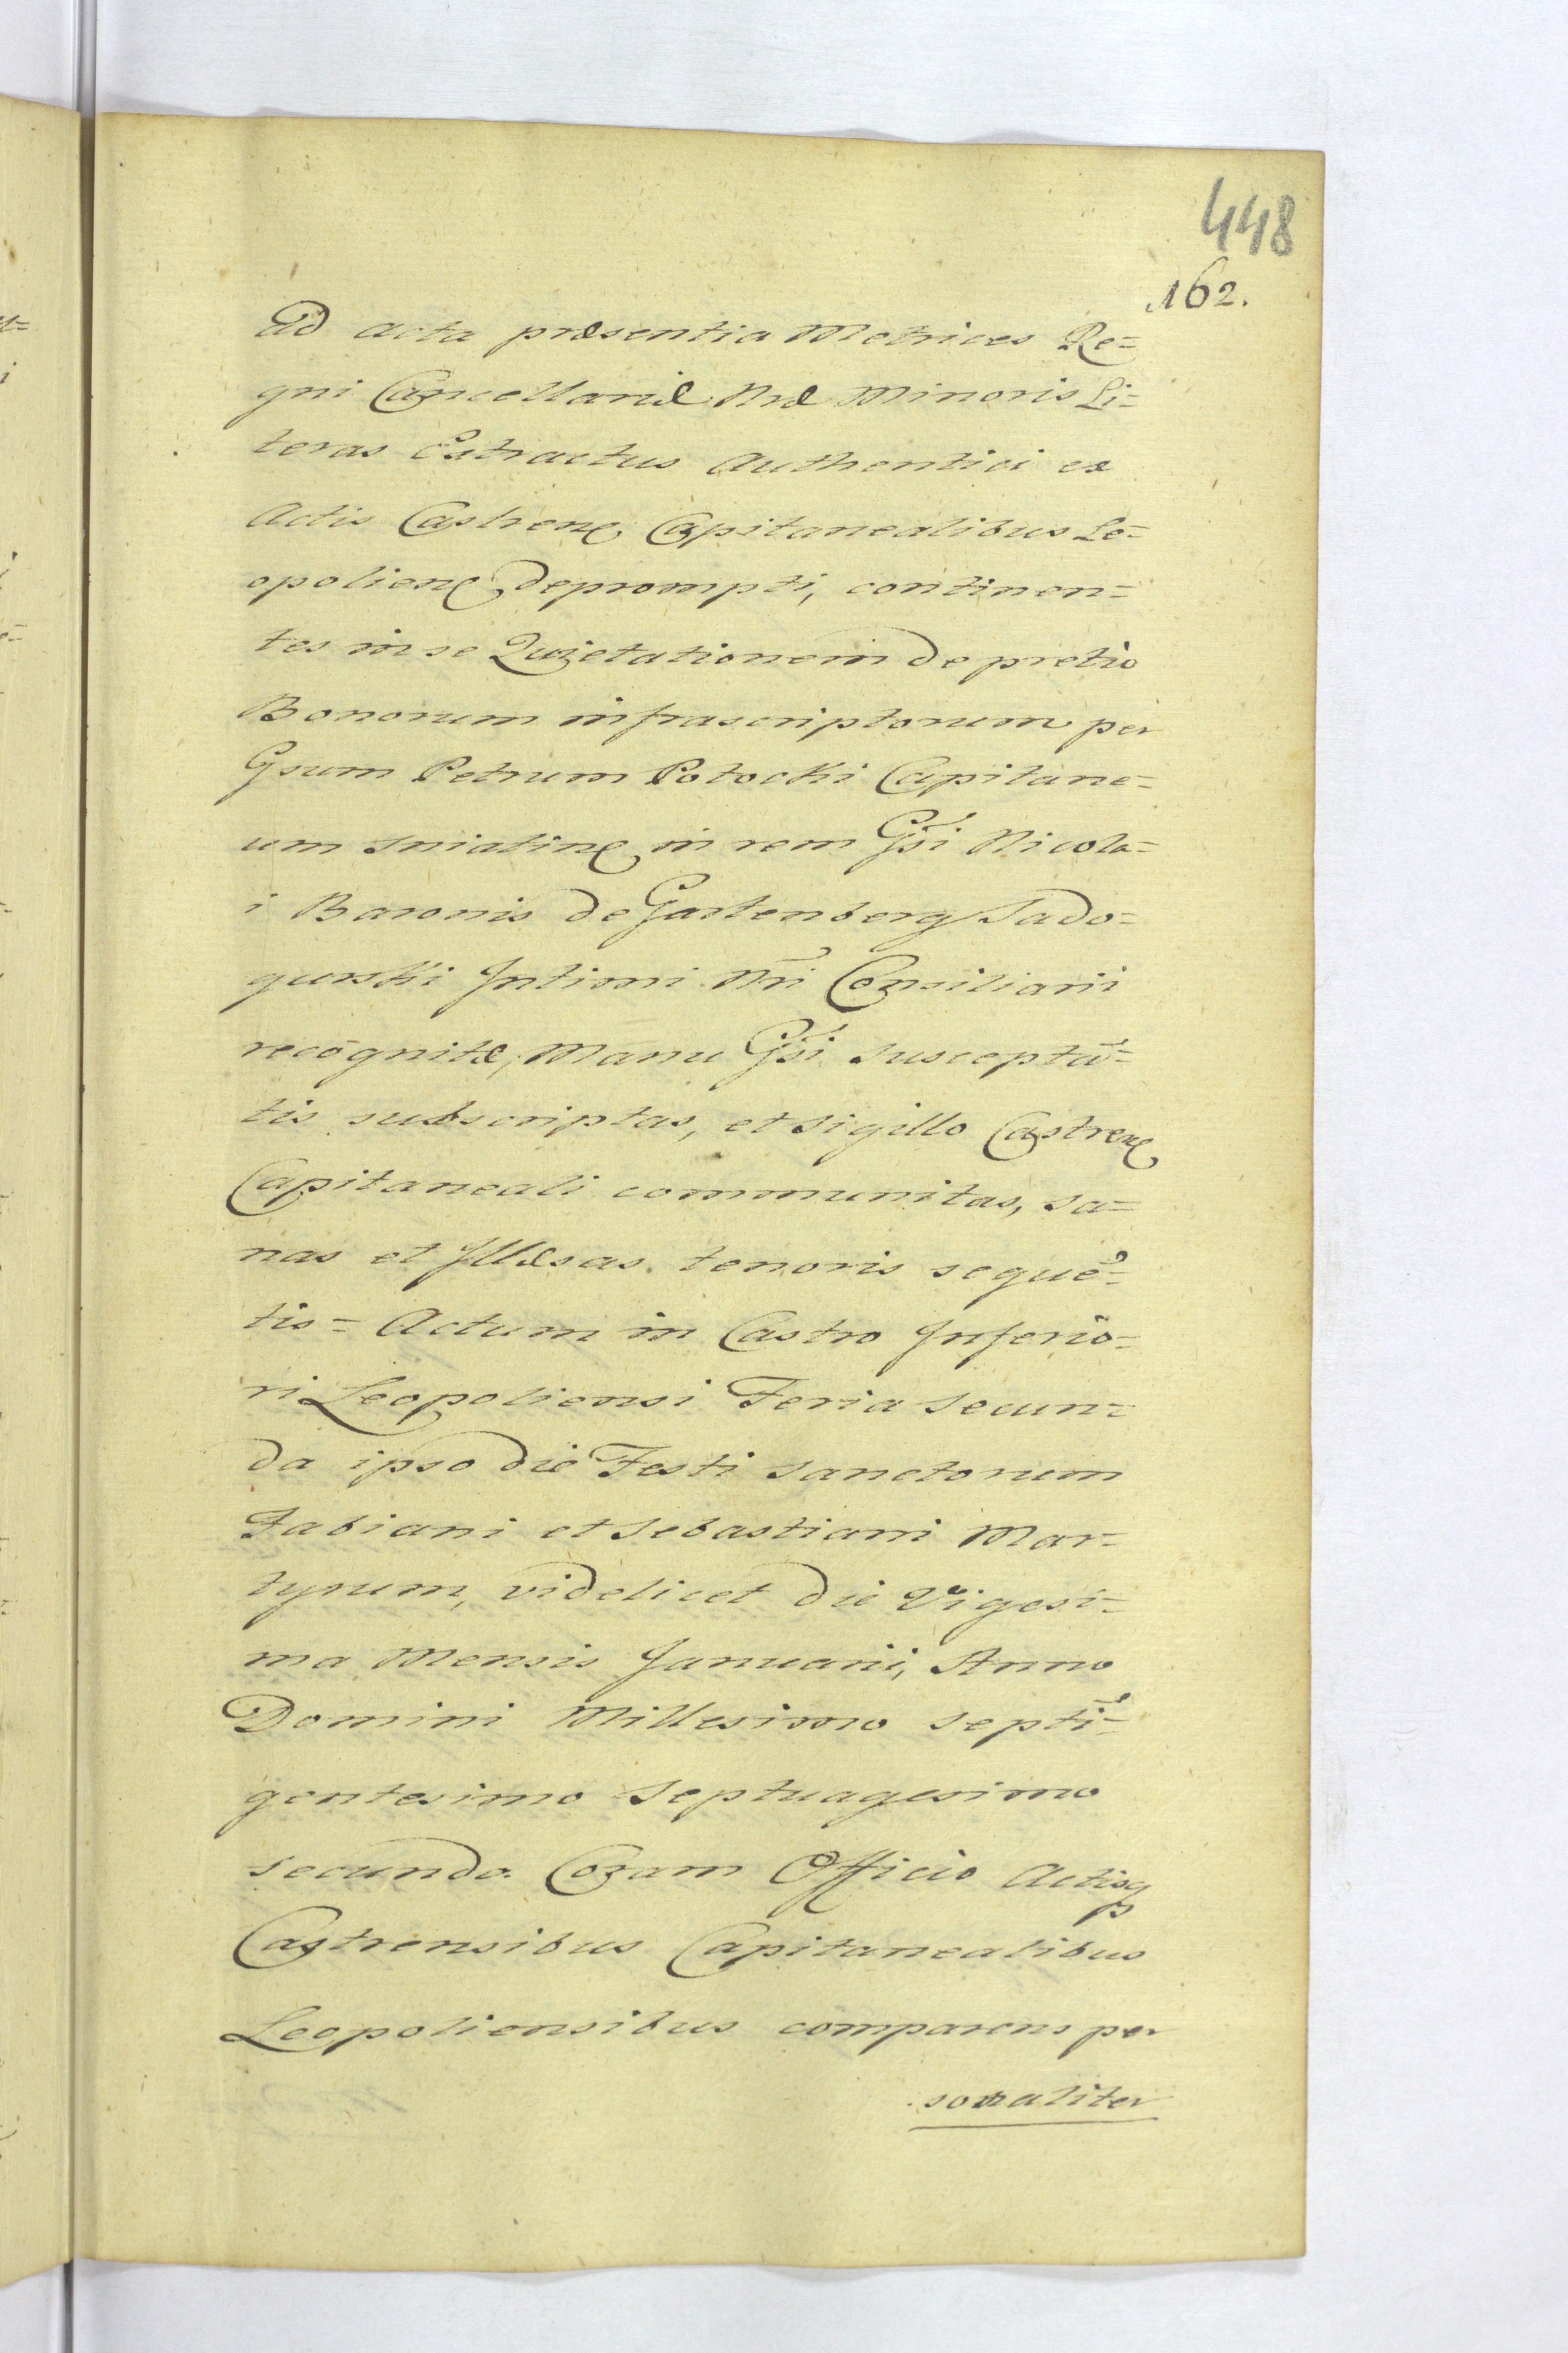 448
162.
Ad acta præsentia Metrices Re=
gni Cancellariæ Nræ Minoris Li=
teras Extractus Authentici ex
Actis Castren Capitanealibus Le=
opolien depromptj, continen=
tes in se Quietationem de pretio
Bonorum infrascriptorum per
Gsum Petrum Potocki Capitane=
um Sniatin in rem Gsi Nicola=
i Baronis de Gartenberg Sado=
gurski Intimi Nri Consiliarii
recognitæ, Manu Gsi Susceptā=
tis subscriptas, et Sigillo Castren
Capitaneali communitas, sa=
nas et Illæsas tenoris sequē=
tis = Actum in Castro Inferio=
ri Leopoliensi Feria Secun=
da ipso die Festi Sanctorum
Fabiani et Sebastiani Mar=
tyrum, videlicet die Vigesi=
ma Mensis Januarii, Anno
Domini Millesimo Septī=
gentesimo Septuagesimo
secundo. Coram Officio Actisq
Castrensibus Capitanealibus
Leopoliensibus comparens per
sonaliter